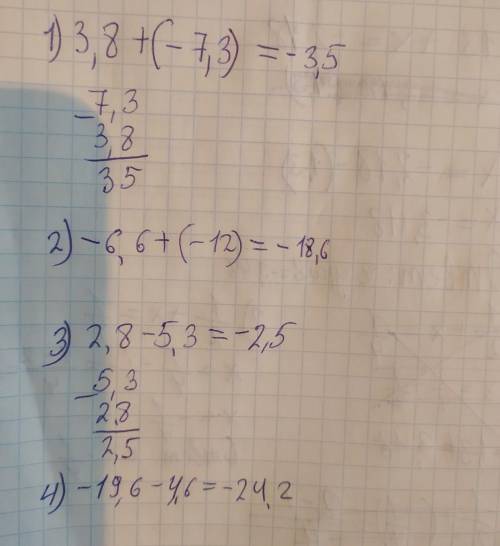 1) 3,8 + (-7,3) = -3,5
-7,3
3,8
35
2) -6,6 + (-12) = -18,6
3) 2,8 - 5,3 = -2,5
-5,3
2,8
2,5
4) -19,6 - 4,6 = -24,2